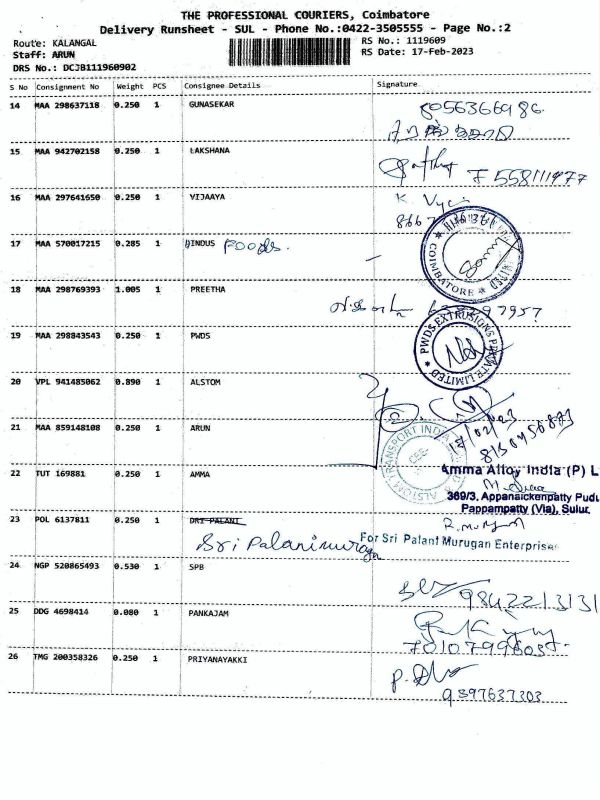 THE PROFESSIONAL COURIERS, Coimbatore
Delivery Runsheet - SUL - Phone No.:0422-3505555 - Page No.:2
Route: KALANGAL
RS No.: 1119609
Staff: ARUN
RS Date: 17-Feb-2023
DRS No.: DCJB111960902
S No Consignment No Weight PCS Consignee Details Signature
14 MAA 298637118 0.250 1 GUNASEKAR
8056366986
15 MAA 942702158 0.250 1 LAKSHANA
16 MAA 297641650 0.250 1 VIJAAYA
17 MAA 570017215 0.285 1 HINDUS Foods.
COIMBATORE
18 MAA 298769393 1.005 1 PREETHA
19 MAA 298843543 0.250 1 PWDS
PWDS EXTRUSIONS PRIVATE LIMITED
20 VPL 941485062 0.890 1 ALSTOM
21 MAA 859148108 0.250 1 ARUN
17/02/23
ALSTOM TRANSPORT INDIA
22 TUT 169881 0.250 1 AMMA
Amma Alloy India (P) L
369/3, Appanaickenpatty Pudu
Pappampatty (Via), Sulur.
23 POL 6137811 0.250 1 DRI PALANI
Sri Palanimuruga
For Sri Palani Murugan Enterprises
24 NGP 520865493 0.530 1 SPB
9842213131
25 DDG 4698414 0.080 1 PANKAJAM
26 TMG 200358326 0.250 1 PRIYANAYAKKI
9397637303